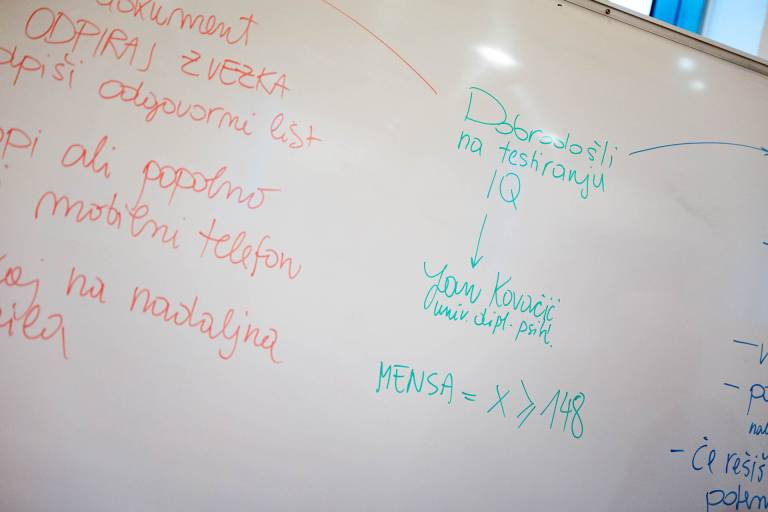 dokument
ODPIRAJ ZVEZKA
odgovorni list
ali popolno
mobilni telefon
na nadaljna
Dobrodošli
na testiranju
IQ
Jan Kovačič
univ. dipl. psih.
MENSA = X ≥ 148
- če rešiš